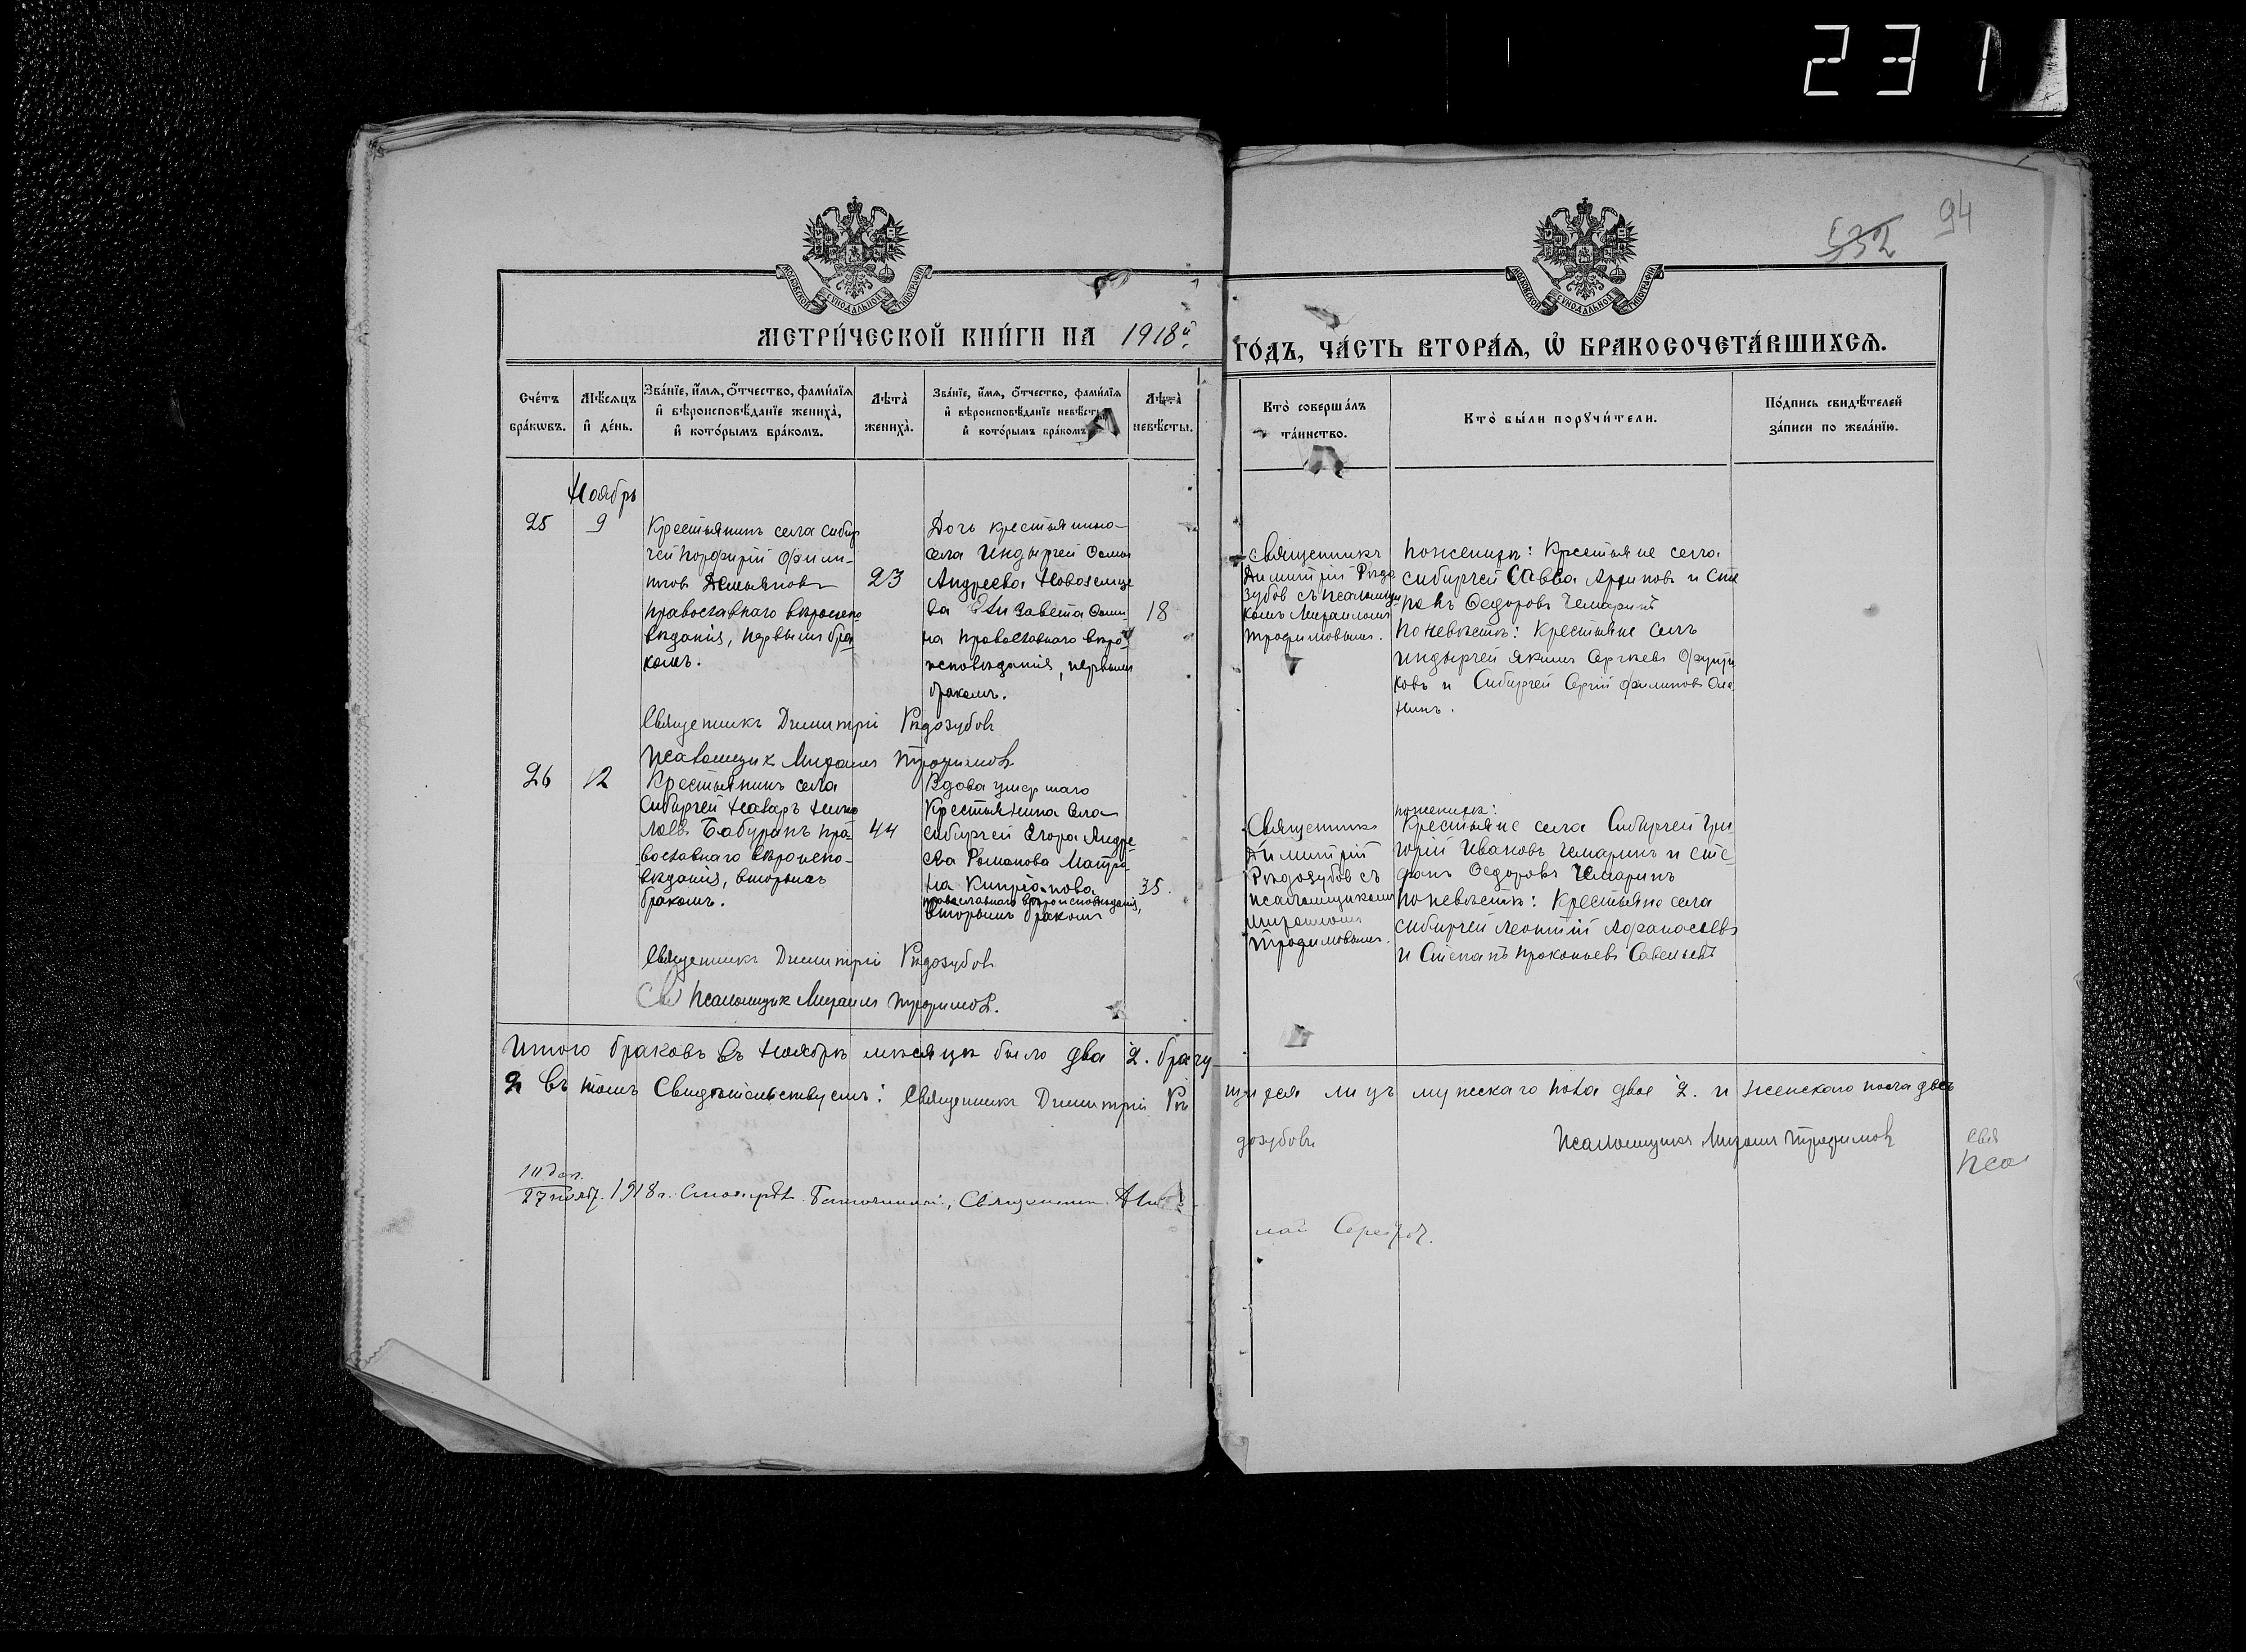 231
94
532
МОСКОВСКОЙ СѴНОДАЛЬНОЙ ТИПОГРАФІИ
МОСКОВСКОЙ СѴНОДАЛЬНОЙ ТИПОГРАФІИ
МЕТРИ́ЧЕСКОЙ КНИ́ГИ НА 1918й
ГО́ДЪ, ЧА́СТЬ ВТОРА́Ѧ, Ѽ БРАКОСОЧЕТА́ВШИХСѦ.
Сче́тъ
бра́кѡвъ.
Мѣ́сѧцъ
и҆ де́нь.
Зва́нїе, и҆́мѧ, о҆́тчество, фами́лїѧ
и҆ вѣроисповѣ́данїе жениха̀,
и҆ кото́рымъ бра́комъ.
Лѣта̀
жениха̀.
Зва́нїе, и҆́мѧ, о҆́тчество, фами́лїѧ
и҆ вѣроисповѣ́данїе невѣ́сты
и҆ кото́рымъ бра́комъ
Лѣта̀
невѣ́сты.
Кто̀ соверша́лъ
та́инство.
Кто̀ бы́ли порꙋчи́тели.
По́дпись свидѣ́телей
за́писи по жела́нїю.
Ноябрь
25
9
Крестьянинъ села Сибир
чей Порфирій Фили-
пповъ Демьяновъ
православнаго вѣроиспо
вѣданія, первымъ бра
комъ.
23
Дочь крестьянина
села Индырчей Осипа
Андреева Новоженце
ва Елизавета Оси-
на православнаго вѣро
исповѣданія, первымъ
бракомъ.
18
Священникъ
Димитрій Рѣдо
зубовъ съ псаломщи
комъ Михаиломъ
Трофимовымъ.
По женихѣ: Крестьяне села
Сибирчей Савва Архиповъ и Сте
панъ Ѳедоровъ Чемаринъ
По невѣстѣ: Крестьяне селъ
Индырчей Якимъ Сергѣевъ
ковъ и Сибирчей Сергій Филиповъ
нинъ.
Священникъ Димитрій Рѣдозубовъ
Псаломщик Михаилъ Трофимовъ
26
12
Крестьянинъ села
Сибирчей Назаръ Нико
лаевъ Бабуринъ пра-
вославнаго вѣроиспо-
вѣданія, вторымъ
бракомъ.
44
Вдова умершаго
Крестьянина села
Сибирчей Егора Андре-
ева Романова Матре
на Кипріанова
православнаго вѣроисповѣданія,
вторымъ бракомъ
35.
Священникъ
Димитрій
Рѣдозубовъ съ
псаломщикомъ
Михаиломъ
Трофимовымъ.
По женихѣ:
Крестьяне села Сибирчей Гри
горій Ивановъ Чемаринъ и Сте-
фанъ Ѳедоровъ Чемаринъ
По невѣстѣ: Крестьяне села
Сибирчей Леонтій Афанасьевъ
и Степанъ Прокопьевъ Савельевъ
Священникъ Димитрій Рѣдозубовъ
Псаломщик Михаилъ Трофимовъ.
Итого браковъ въ Ноябрѣ мѣсяцѣ было два 2. брачу
щихся лицъ мужскаго пола двое 2. и женскаго пола двѣ
2 въ томъ Свидѣтельствуемъ: Священникъ Димитрій Рѣ
дозубовъ Псаломщикъ Михаилъ Трофимовъ
Свя
Пса
27 нояб. 1918 г. Смотрѣлъ Благочинный, Священникъ